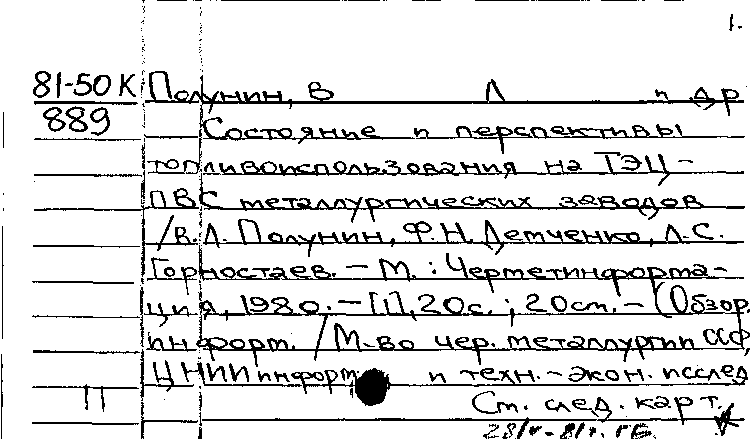 1.
81-50К Полунин, В Л и др
889 Состояние и перспективы
топливоиспользования на ТЭЦ -
ПВС металлургических заводов
/В.Л. Полунин, Ф.Н. Демченко, Л.С.
Горностаев. - М. : Черметинформа-
ция, 1980. - [1], 20с. ; 20см. - (Обзор.
информ. / М-во чер. металлургии ССР,
ЦНИИинформ. и техн.-экон. исслед
11 См. след. карт.